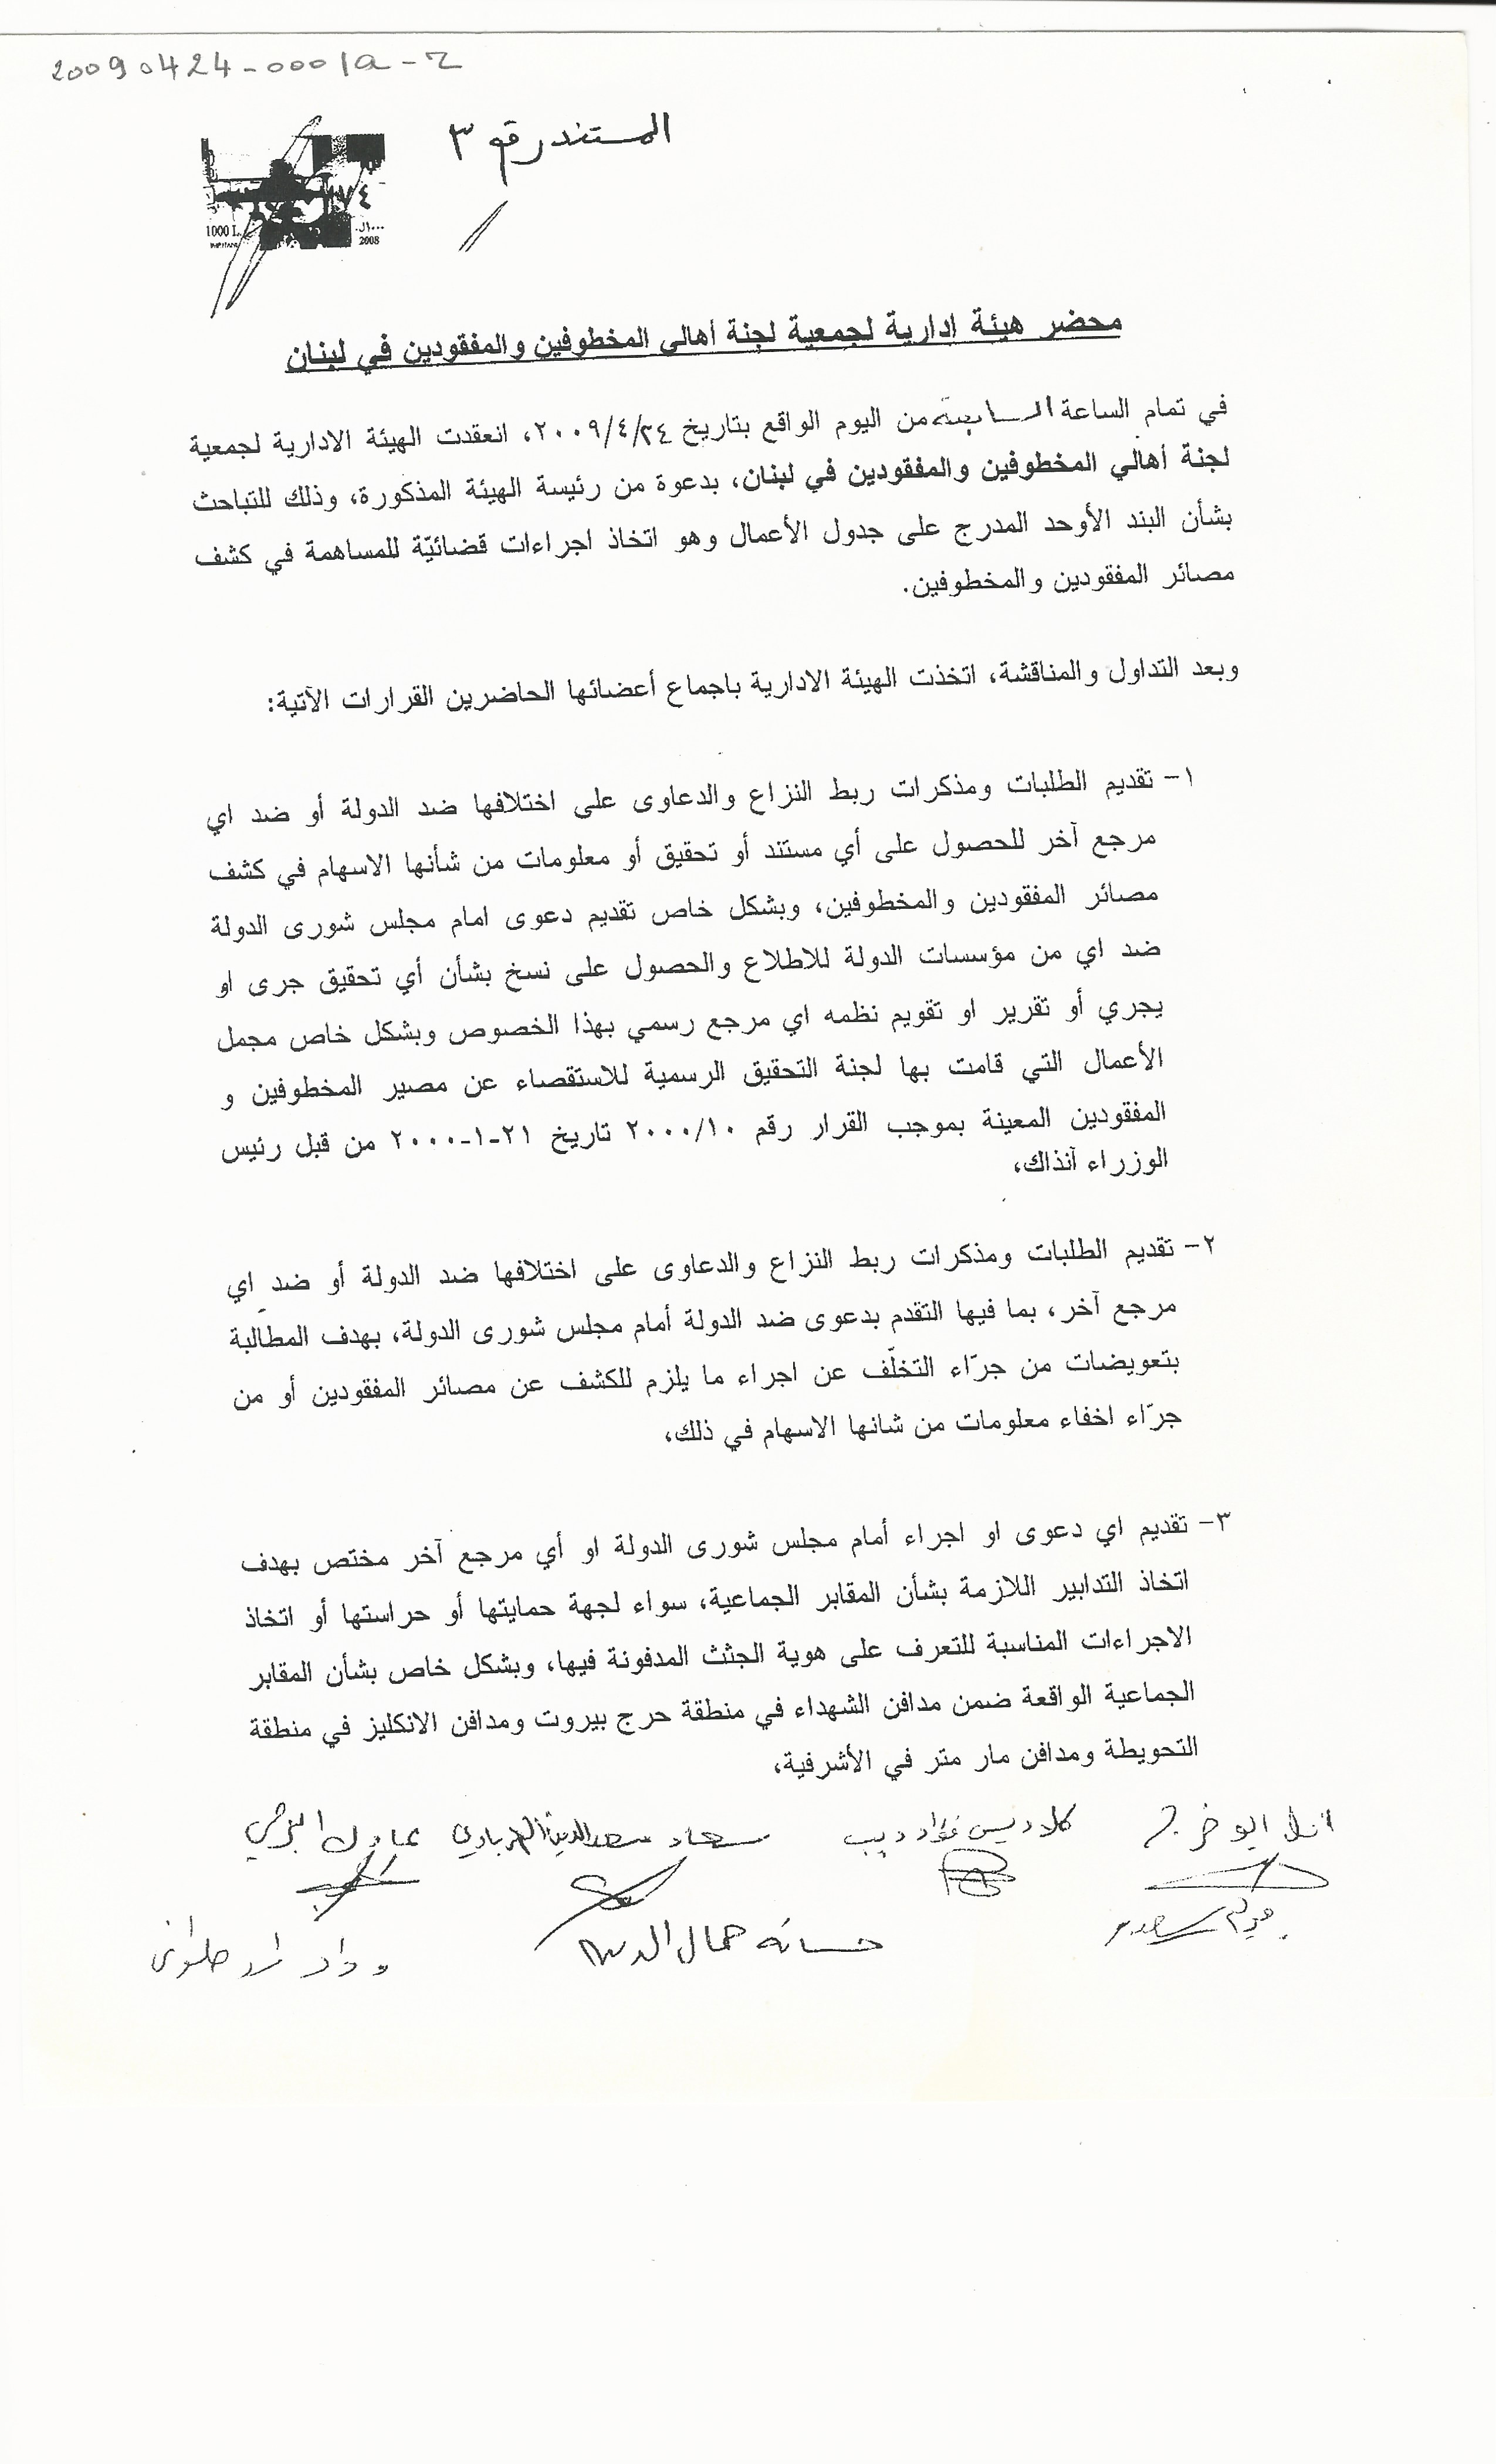 20090424-0001a-2
المستند رقم ٣
1000 L.
٢٠٠٠ل.
2008
محضر هيئة ادارية لجمعية لجنة أهالي المخطوفين والمفقودين في لبنان
في تمام الساعة السابعة من اليوم الواقع بتاريخ ٢٠٠٩/٤/٢٤، انعقدت الهيئة الادارية لجمعية
لجنة أهالي المخطوفين والمفقودين في لبنان، بدعوة من رئيسة الهيئة المذكورة، وذلك للتباحث
بشأن البند الأوحد المدرج على جدول الأعمال وهو اتخاذ اجراءات قضائيّة للمساهمة في كشف
مصائر المفقودين والمخطوفين.
وبعد التداول والمناقشة، اتخذت الهيئة الادارية باجماع أعضائها الحاضرين القرارات الآتية:
١- تقديم الطلبات ومذكرات ربط النزاع والدعاوى على اختلافها ضد الدولة أو ضد اي
مرجع آخر للحصول على أي مستند أو تحقيق أو معلومات من شأنها الاسهام في كشف
مصائر المفقودين والمخطوفين، وبشكل خاص تقديم دعوى امام مجلس شورى الدولة
ضد اي من مؤسسات الدولة للاطلاع والحصول على نسخ بشأن أي تحقيق جرى او
يجري أو تقرير او تقويم نظمه اي مرجع رسمي بهذا الخصوص وبشكل خاص مجمل
الأعمال التي قامت بها لجنة التحقيق الرسمية للاستقصاء عن مصير المخطوفين و
المفقودين المعينة بموجب القرار رقم ٢٠٠٠/١٠ تاريخ ٢١-١-٢٠٠٠ من قبل رئيس
الوزراء آنذاك،
٢- تقديم الطلبات ومذكرات ربط النزاع والدعاوى على اختلافها ضد الدولة أو ضد اي
مرجع آخر، بما فيها التقدم بدعوى ضد الدولة أمام مجلس شورى الدولة، بهدف المطالبة
بتعويضات من جرّاء التخلّف عن اجراء ما يلزم للكشف عن مصائر المفقودين أو من
جرّاء اخفاء معلومات من شانها الاسهام في ذلك،
٣- تقديم اي دعوى او اجراء أمام مجلس شورى الدولة او أي مرجع آخر مختص بهدف
اتخاذ التدابير اللازمة بشأن المقابر الجماعية، سواء لجهة حمايتها أو حراستها أو اتخاذ
الاجراءات المناسبة للتعرف على هوية الجثث المدفونة فيها، وبشكل خاص بشأن المقابر
الجماعية الواقعة ضمن مدافن الشهداء في منطقة حرج بيروت ومدافن الانكليز في منطقة
التحويطة ومدافن مار متر في الأشرفية،
كلاديس فؤاد ديب سعاد سعد الدين
مريم سعيدي حسانه جمال الدين وداد مراد حلواني